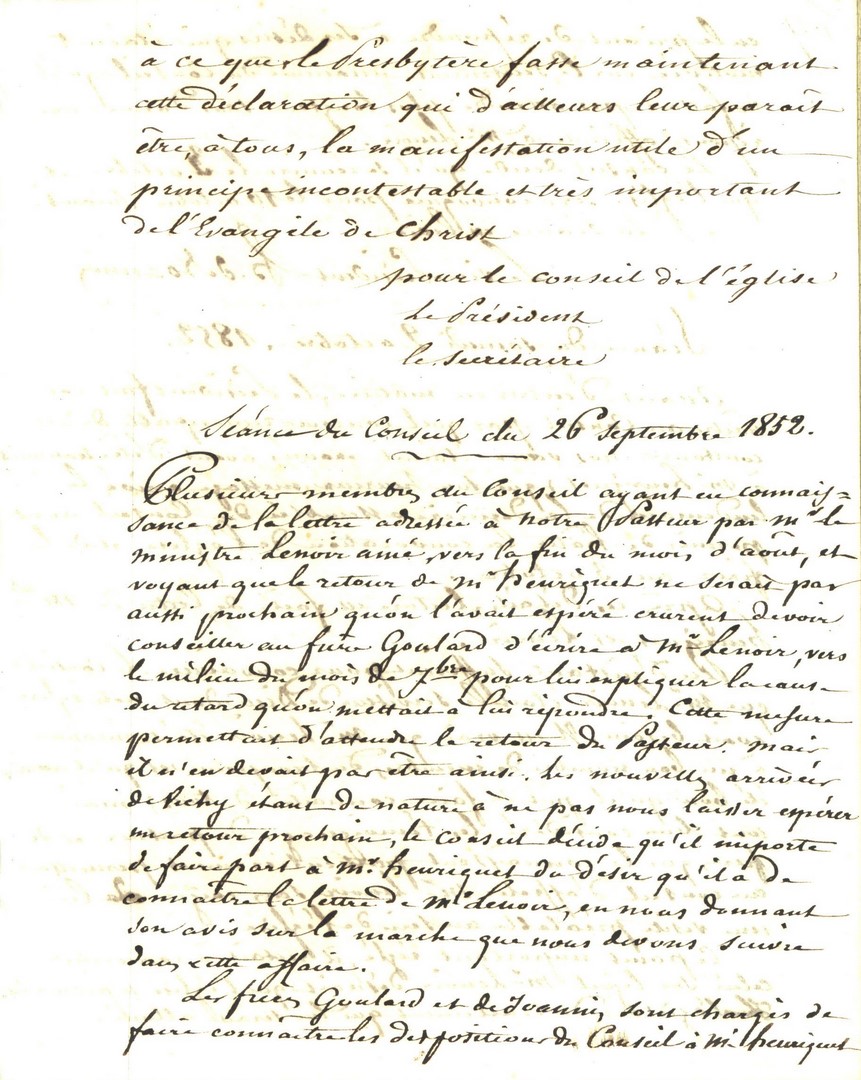 à ce que le Presbytère fasse maintenant
cette déclaration qui d'ailleurs leur paraît
être, à tous, la manifestation utile d'un
principe incontestable et très important
de l'Evangile de Christ
pour le conseil de l'église
Le Président
le secrétaire
Séance du Conseil du 26 septembre 1852.
Plusieurs membres du Conseil ayant eu connais=
sance de la lettre adressée à notre Pasteur par Mr le
ministre Lenoir ainé, vers la fin du mois d'août, et
voyant que le retour de Mr henriquet ne serait pas
aussi prochain qu'on l'avait espéré crurent devoir
conseiller au frère Goulard d'écrire à Mr Lenoir, vers
le milieu du mois de 7bre pour lui expliquer la cause
du retard qu'on mettait à lui répondre. Cette mesure
permettait d'attendre le retour du Pasteur. mais
il n'en devait pas être ainsi. les nouvelles arrivées
de Vichy étant de nature à ne pas nous laisser espérer
un retour prochain, le conseil décide qu'il importe
de faire part à Mr henriquet du désir qu'il a de
connaître la lettre de Mr Lenoir, en nous donnant
son avis sur la marche que nous devons suivre
dans cette affaire.
Les frères Goulard et de Joannis sont chargés de
faire connaître les dispositions du Conseil à Mr henriquet